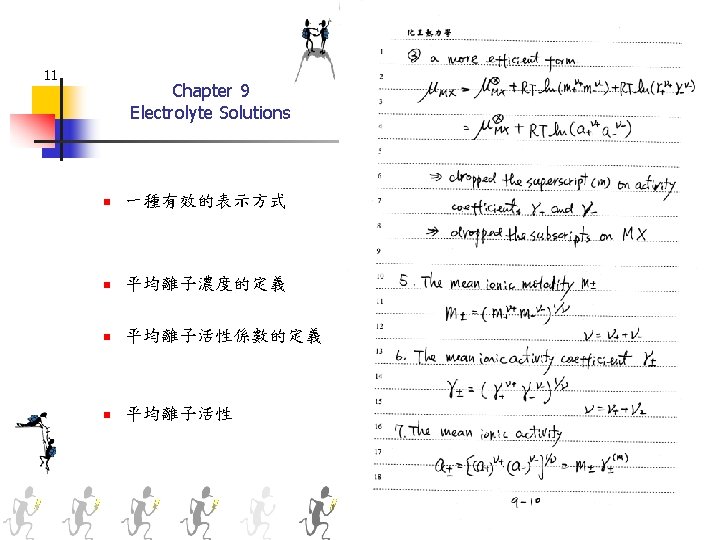 11
Chapter 9
Electrolyte Solutions
一種有效的表示方式
平均離子濃度的定義
平均離子活性係數的定義
平均離子活性
化工熱力學
1
③ a more efficient form
2
μMX = μ⊗MX + RT ln(m+^ν+ m-^ν-) + RT ln(γ+^ν+ γ-^ν-)
3
4
= μ⊗MX + RT ln(a+^ν+ a-^ν-)
5
6
⇒ dropped the superscript (m) on activity
7
coefficients γ+ and γ-
8
⇒ dropped the subscripts on MX
9
10
5. The mean ionic molality m±
11
m± = (m+^ν+ m-^ν-)^1/ν
12
ν = ν+ + ν-
13
6. The mean ionic activity coefficient γ±
14
γ± = (γ+^ν+ γ-^ν-)^1/ν
15
ν = ν+ + ν-
16
7. The mean ionic activity
17
a± = [(a+)^ν+ (a-)^ν-]^1/ν = m± γ±^(m)
18
9-10